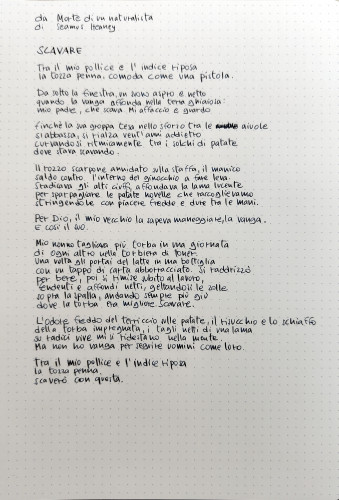 da Morte di un naturalista
di Seamus Heaney
SCAVARE
Tra il mio pollice e l'indice riposa
la tozza penna. comoda come una pistola.
Da sotto la finestra, un suono aspro e netto
quando la vanga affonda nella terra ghiaiosa:
mio padre, che scava. Mi affaccio e guardo
finché la sua groppa tesa nello sforzo tra le aiuole
si abbassa, si rialza vent'anni addietro
curvandosi ritmicamente tra i solchi di patate
dove stava scavando.
Il rozzo scarpone annidato sulla staffa, il manico
saldo contro l'interno del ginocchio a fare leva.
Sradicava gli alti ciuffi, affondava la lama lucente
per sparpagliare le patate novelle che raccoglievamo
stringendole con piacere fredde e dure tra le mani.
Per Dio, il mio vecchio la sapeva maneggiare, la vanga.
E così il suo.
Mio nonno tagliava più torba in una giornata
di ogni altro nella torbiera di Toner.
Una volta gli portai del latte in una bottiglia
con un tappo di carta abborracciato. Si raddrizzò
per bere, poi si rimise subito al lavoro,
fendenti e affondi netti, gettandosi le zolle
sopra la spalla, andando sempre più giù
dove la torba era migliore. Scavare.
L'odore freddo del terriccio nelle patate, il risucchio e lo schiaffo
della torba impregnata, i tagli netti di una lama
su radici vive mi si ridestano nella mente.
Ma non ho vanga per seguire uomini come loro.
Tra il mio pollice e l'indice riposa
la tozza penna.
scaverò con questa.